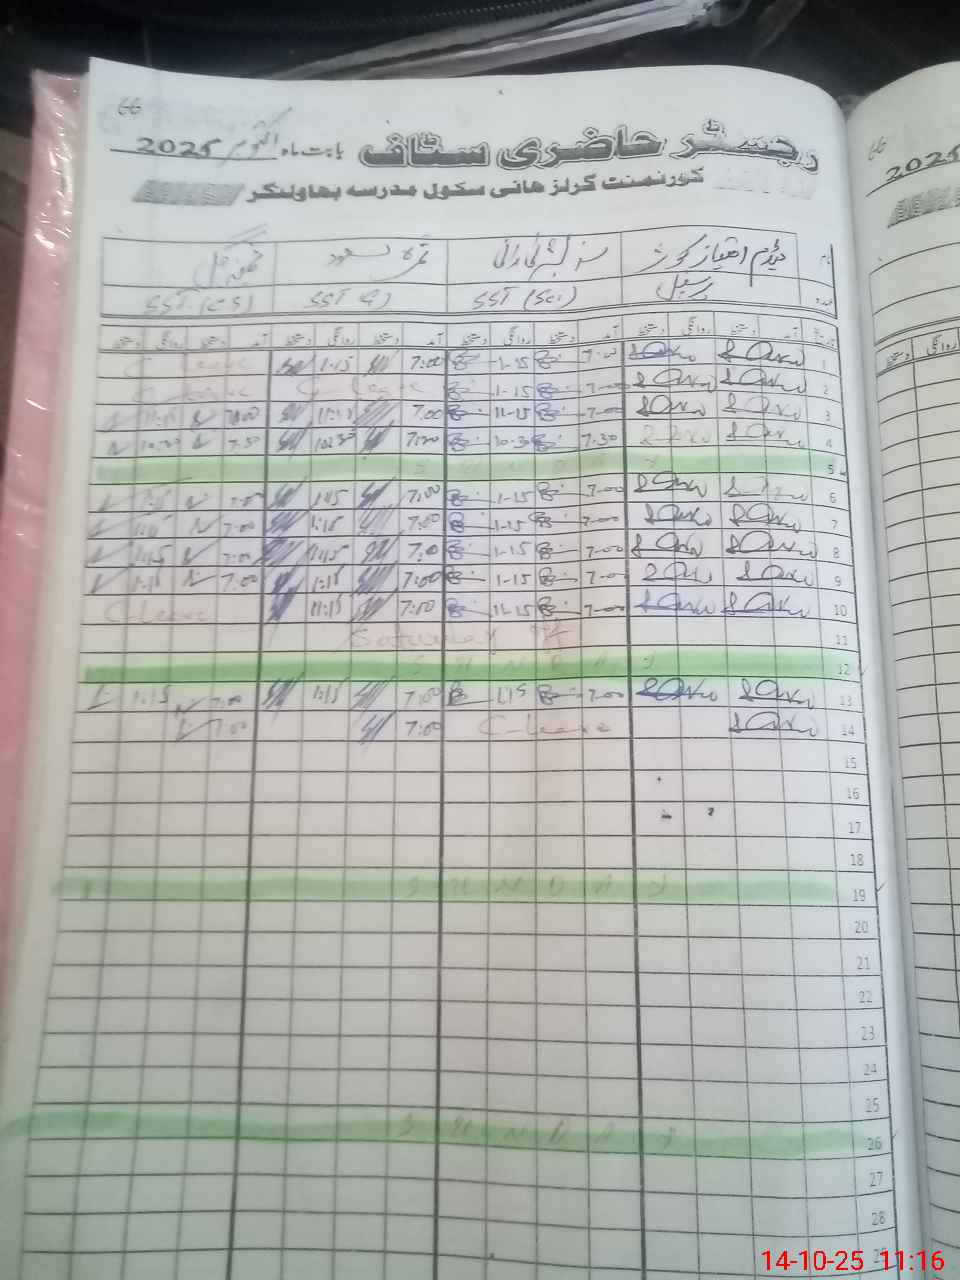 66
رجسٹر حاضری سٹاف بابت ماہ اکتوبر 2025
گورنمنٹ گرلز ہائی سکول مدرسہ بہاولنگر
نام میڈم امتیاز کوثر
عہدہ پرنسپل SST (Sci) SST (G) SST (CS)
تاریخ آمد دستخط روانگی دستخط آمد دستخط روانگی دستخط آمد دستخط روانگی دستخط آمد دستخط روانگی دستخط
1 7:00 1-15 7:00 1:15 C-leave
2 7-00 1-15 C-leave C-leave
3 7-00 11-15 7:00 11:15 7:00 11:15
4 7:30 10-30 7:30 10:30 7:30 10:30
5 S U N D A Y
6 7-00 1-15 7:00 1:15 7:00 1:15
7 7-00 1-15 7:00 1:15 7:00 1:15
8 7-00 1-15 7:00 1:15 7:00 1:15
9 7-00 1-15 7:00 1:15 7:00 1:15
10 7-00 11-15 7:00 11:15 C-Leave
11 Saturday off
12 S U N D A Y
13 7-00 1-15 7:00 1:15 7:00 1:15
14 C-leave 7:00 7:00
15
16
17
18
19 S U N D A Y
20
21
22
23
24
25
26 S U N D A Y
27
28
29
66
2025
دستخط روانگی
14-10-25 11:16